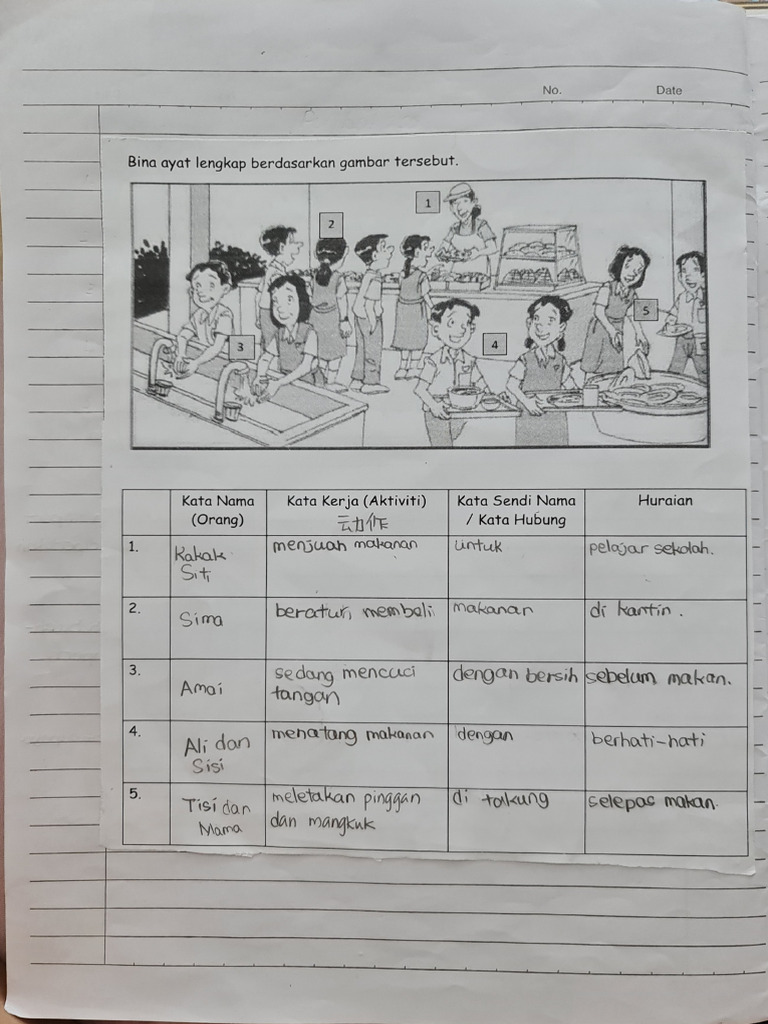 No. Date
Bina ayat lengkap berdasarkan gambar tersebut.
1
2
3
4
5
Kata Nama (Orang)
Kata Kerja (Aktiviti) 动作
Kata Sendi Nama / Kata Hubung
Huraian
1.
Kakak
Siti
menjual makanan
untuk
pelajar sekolah.
2.
Sima
beratur, membeli
makanan
di kantin.
3.
Amai
sedang mencuci
tangan
dengan bersih
sebelum makan.
4.
Ali dan
Sisi
menatang makanan
dengan
berhati-hati
5.
Tisi dan
Mama
meletakan pinggan
dan mangkuk
di
selepas makan.